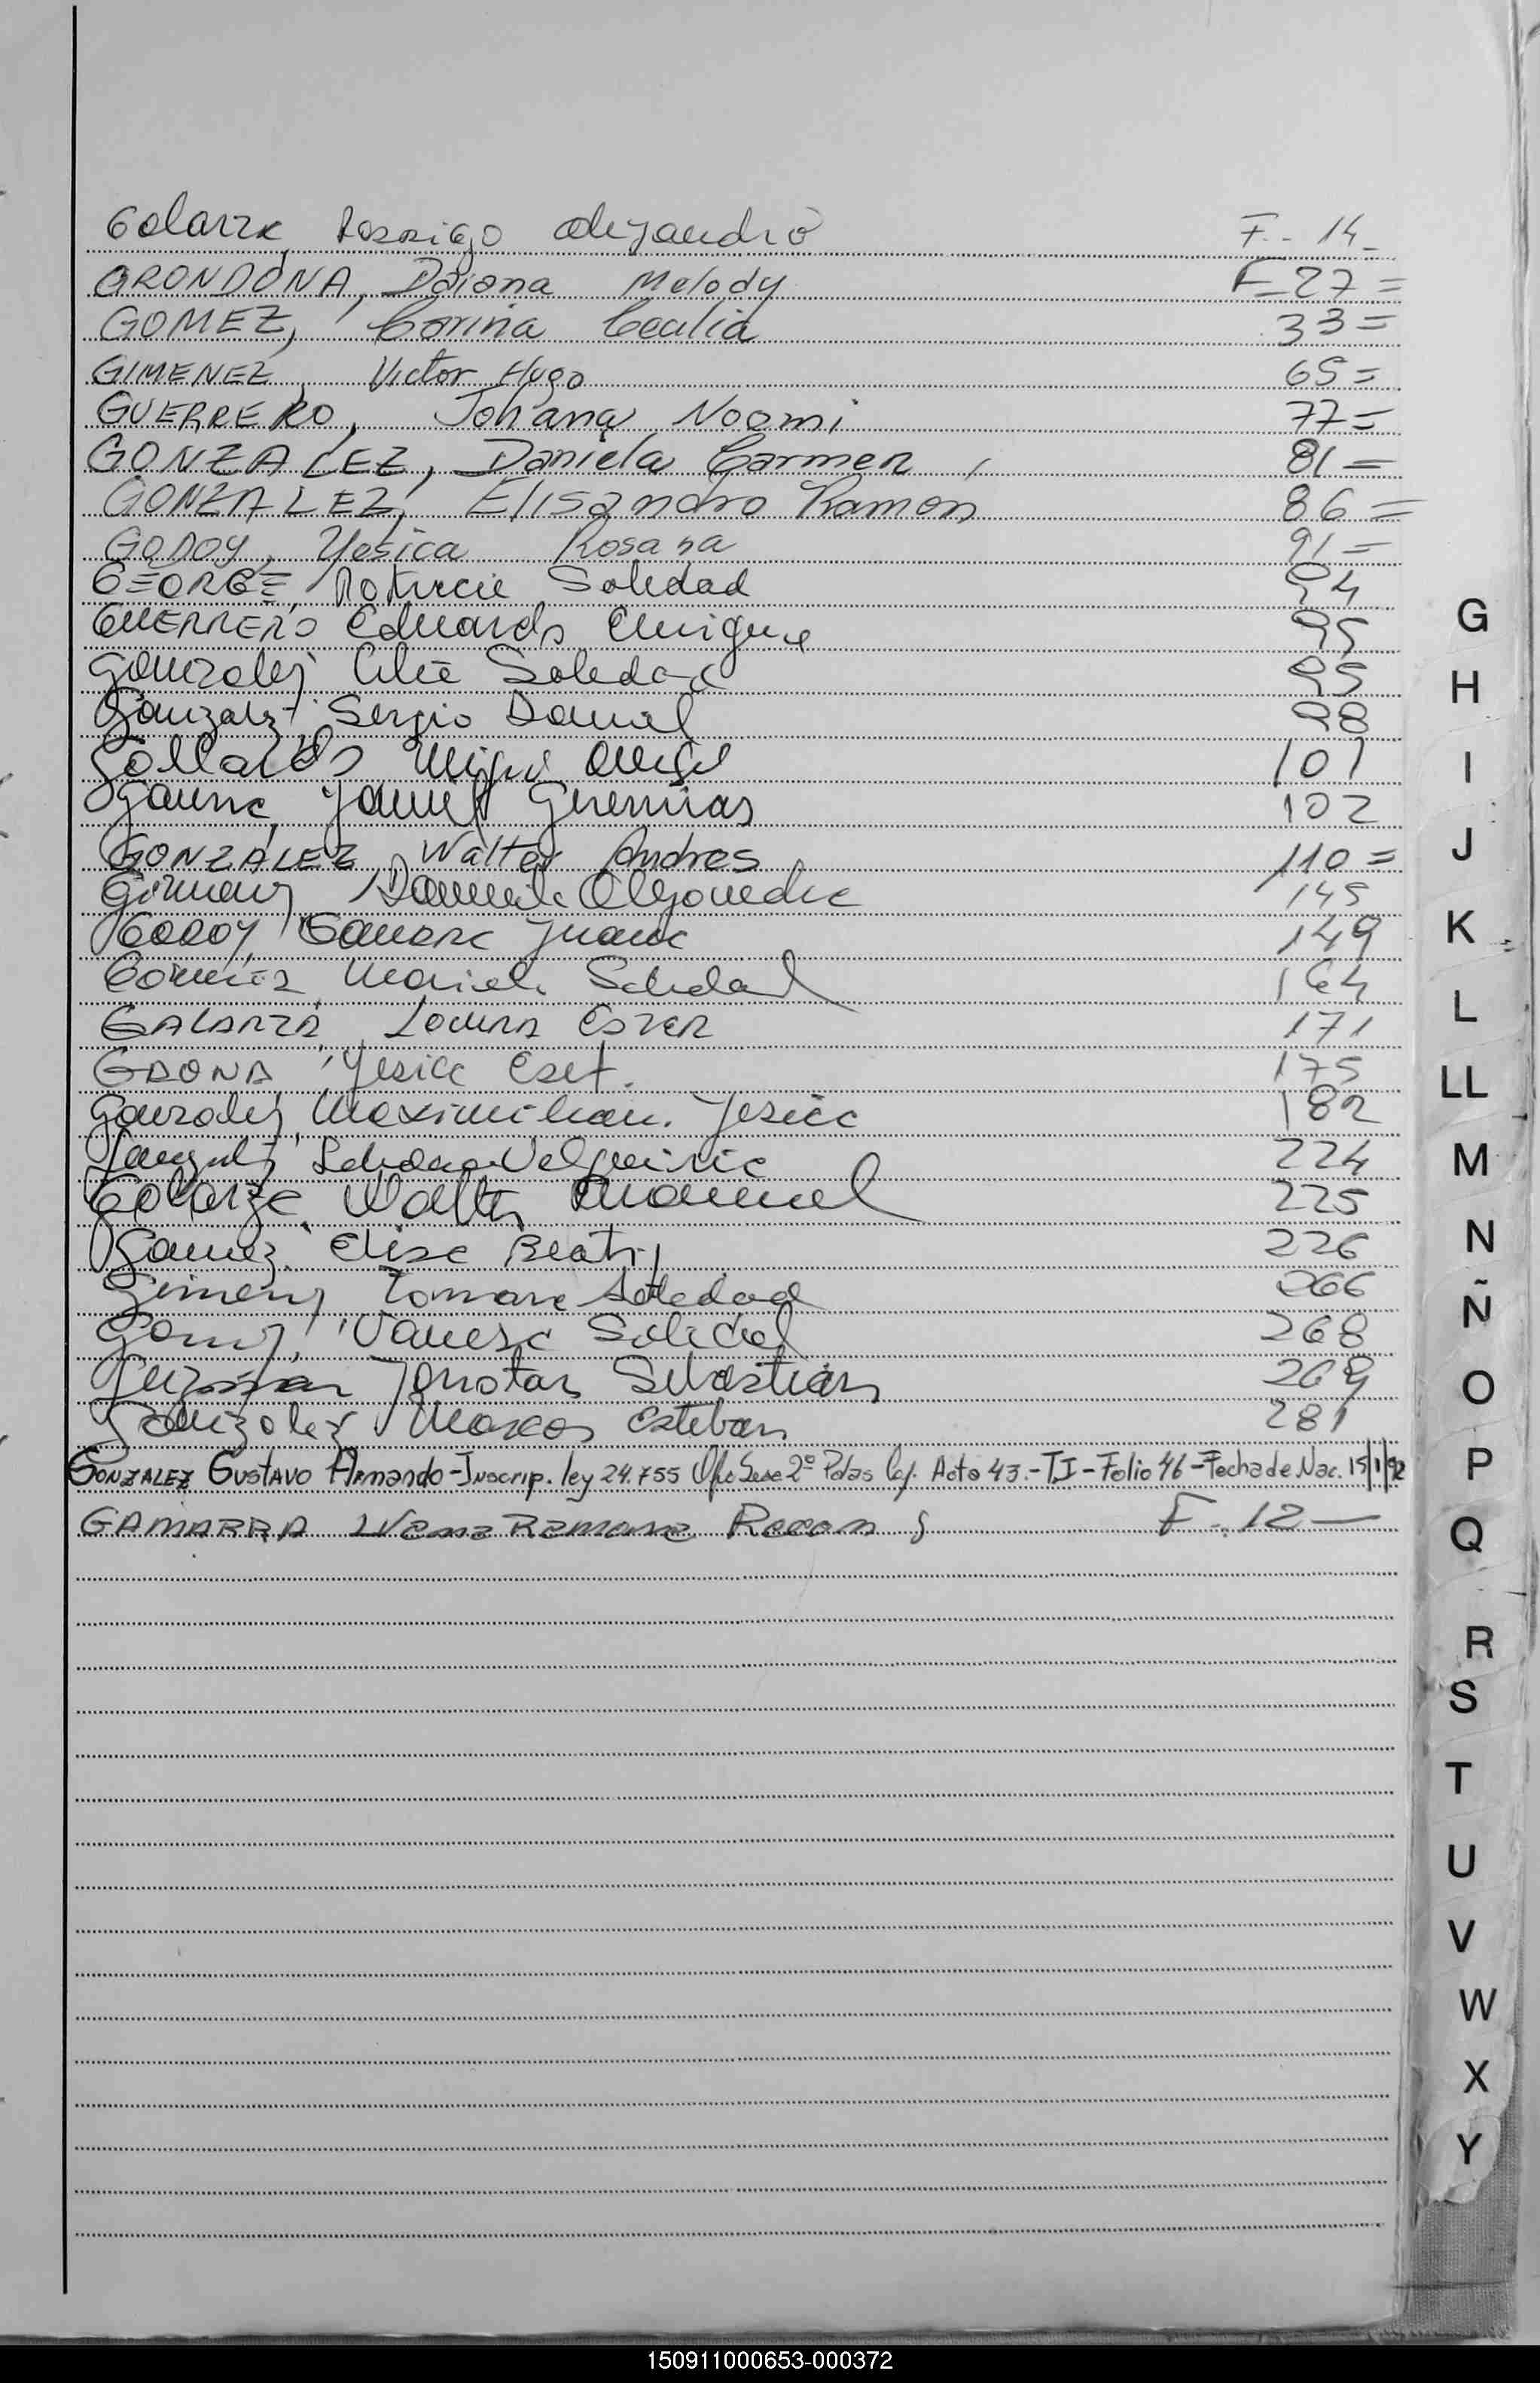 Galarza, Rodrigo Alejandro F.- 14-
GRONDONA, Daiana Melody F-27=
GOMEZ, Corina Cecilia 33=
GIMENEZ, Victor Hugo 65=
GUERRERO, Johana Noomi 77=
GONZALEZ, Daniela Carmen, 81=
GONZALEZ, Elisandro Ramon 86=
GODOY, Yesica Rosana 91=
GEORGE, Patricia Soledad 94
GUERRERO Eduardo Enrique 95
Gonzalez, Celia Soledad 95
Gonzalez, Sergio Daniel 98
Gallardo Miguel Angel 101
Gauna, Jeremias 102
GONZALEZ, Walter Andres 110=
Gimenez, Alejandra 145
GODOY, Juana 149
Gomez, Mariela Soledad 164
GALARZA, Ester 171
GAONA, Yesica Eset. 175
Gonzalez, Maximiliana. Yesica 182
224
Galarza, Walter Manuel 225
Gomez, Elisa Beatriz 226
Gimenez, Soledad 266
Gomez, Vanesa Soledad 268
Guzman Jonatan Sebastian 269
Gonzalez Marcos Esteban 281
GONZALEZ GUSTAVO Armando-Inscrip. ley 24.755 2º Pdas Acta 43.-TI-Folio 46-Fecha de Nac. 15/1/92
GAMARRA Ramona F.12—
G
H
I
J
K
L
LL
M
N
Ñ
O
P
Q
R
S
T
U
V
W
X
Y
150911000653-000372